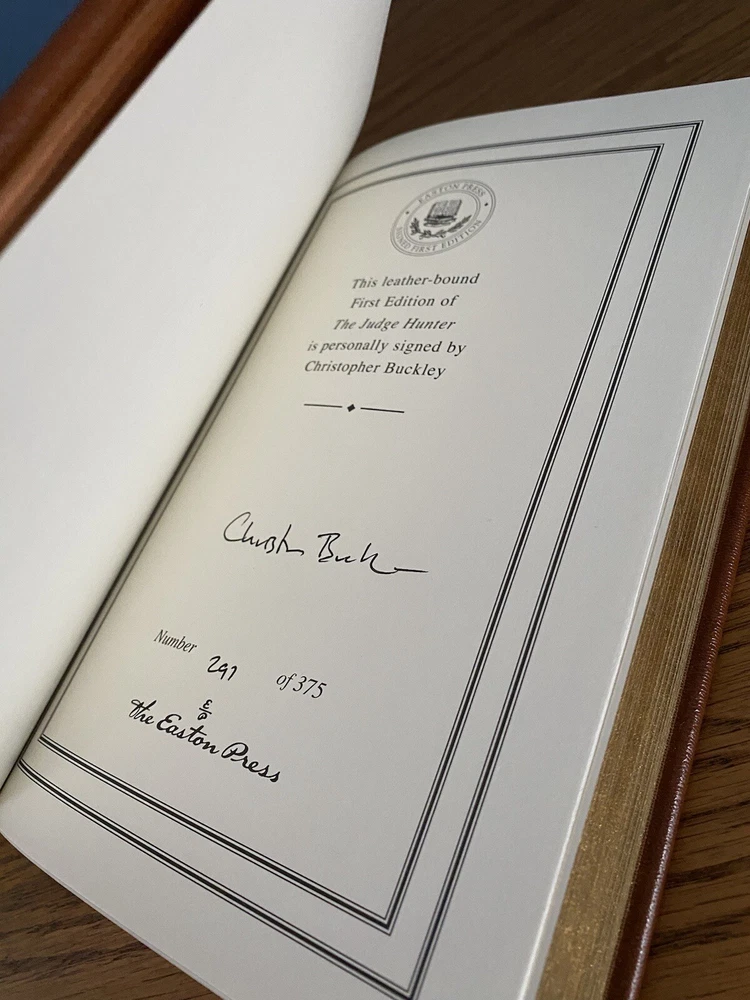 EASTON PRESS
SIGNED FIRST EDITION
This leather-bound
First Edition of
The Judge Hunter
is personally signed by
Christopher Buckley
Number 291 of 375
E/P
the Easton Press